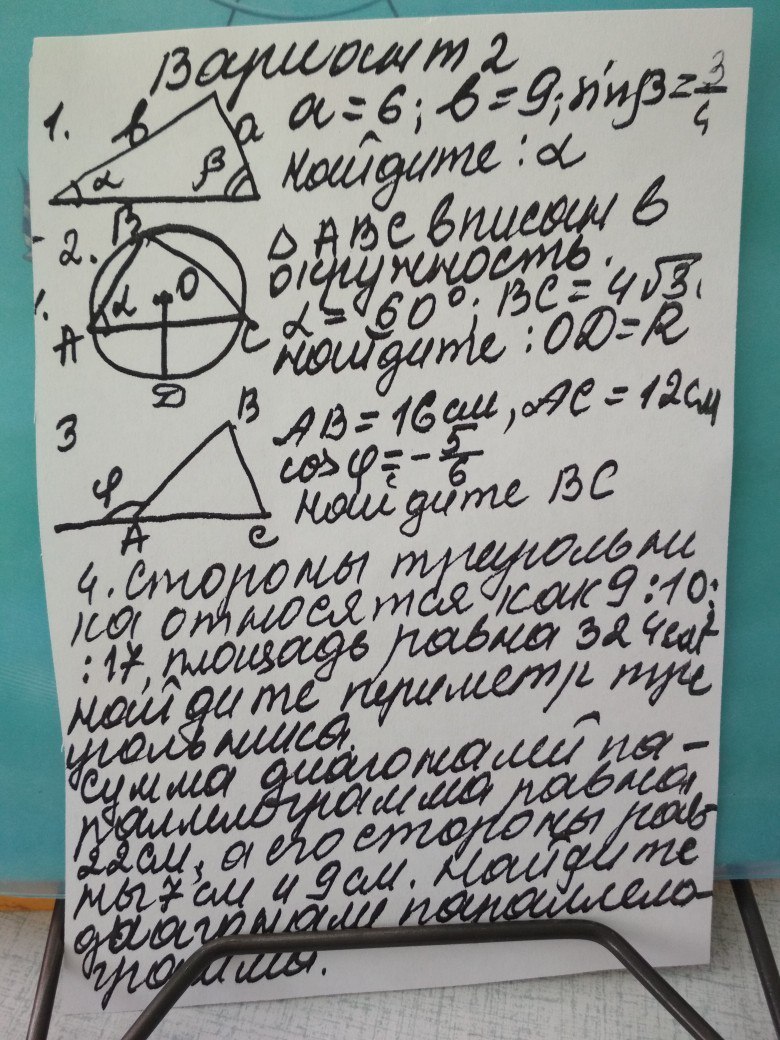 Вариант 2
1. в a α β a = 6; в = 9; sinβ = 3/4
найдите: α
2. B O α A C D Δ ABC вписан в
окружность.
α = 60°; BC = 4√3.
найдите: OD = R
3 B φ A C AB = 16 см, AC = 12 см
cos φ = -5/6
найдите BC
4. Стороны треугольни
ка относятся как 9:10:
:17, площадь равна 324 см²
найдите периметр тре
угольника.
Сумма диагоналей па-
раллелограмма равна
22 см, а его стороны рав-
ны 7 см и 9 см. найдите
диагонали параллело-
грамма.